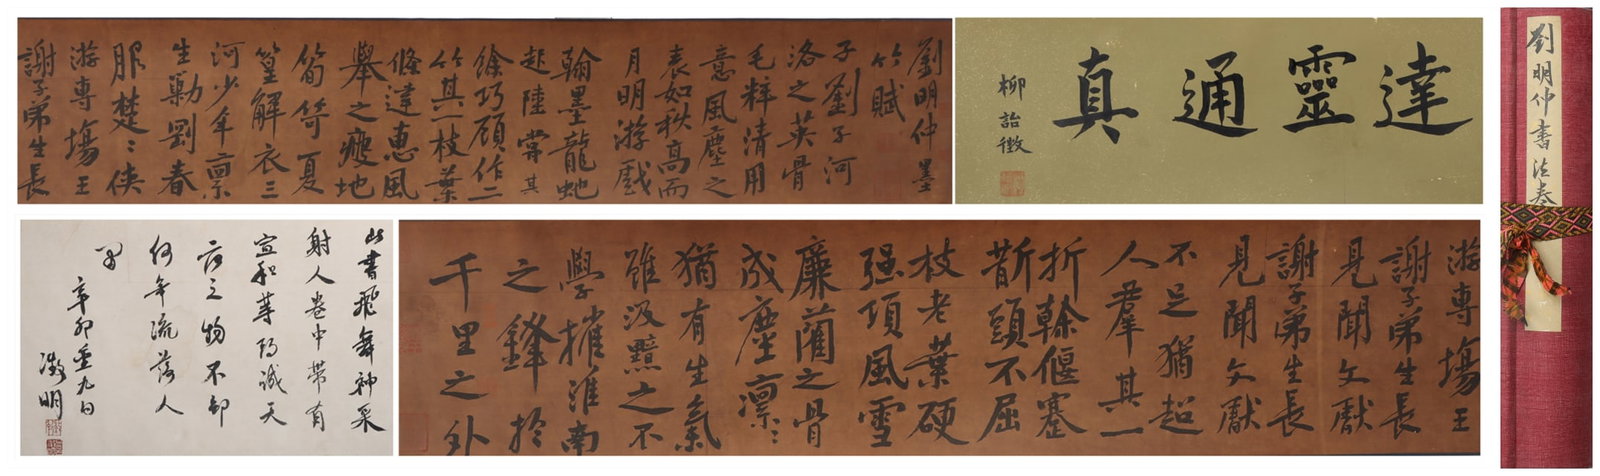 劉明仲書法卷
達靈通真
柳詒徵
劉明仲墨
竹賦
子劉子河
洛之英骨
毛粹清用
意風塵之
表如秋高而
月明游戲
翰墨龍蛇
起陸嘗其
餘巧顧作二
竹其一枝葉
條達惠風
舉之瘦地
筍笴夏
篁解衣三
河少年禀
生勦劉春
服楚〻俠
游專場王
謝子弟生長
游專場王
謝子弟生長
見聞文獻
謝子弟生長
見聞文獻
不足猶超
人羣其一
折榦偃蹇
斮頭不屈
枝老葉硬
强項風雪
廉藺之骨
成塵凛〻
猶有生氣
雖汲黯之不
學摧淮南
之鋒於
千里之外
此書飛舞神采
射人卷中帶有
宣和等印誠天
府之物不知
何年流落人
間
辛卯重九日
徵明